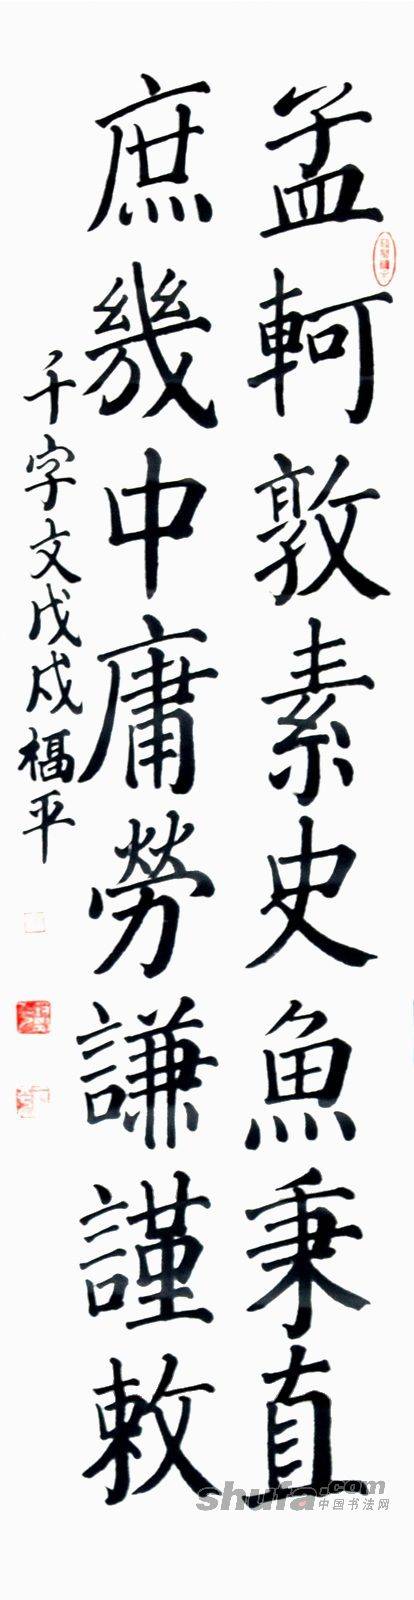 孟軻敦素史魚秉直
庶幾中庸勞謙謹敕
千字文戊戌福平
shufa.com
中国书法网